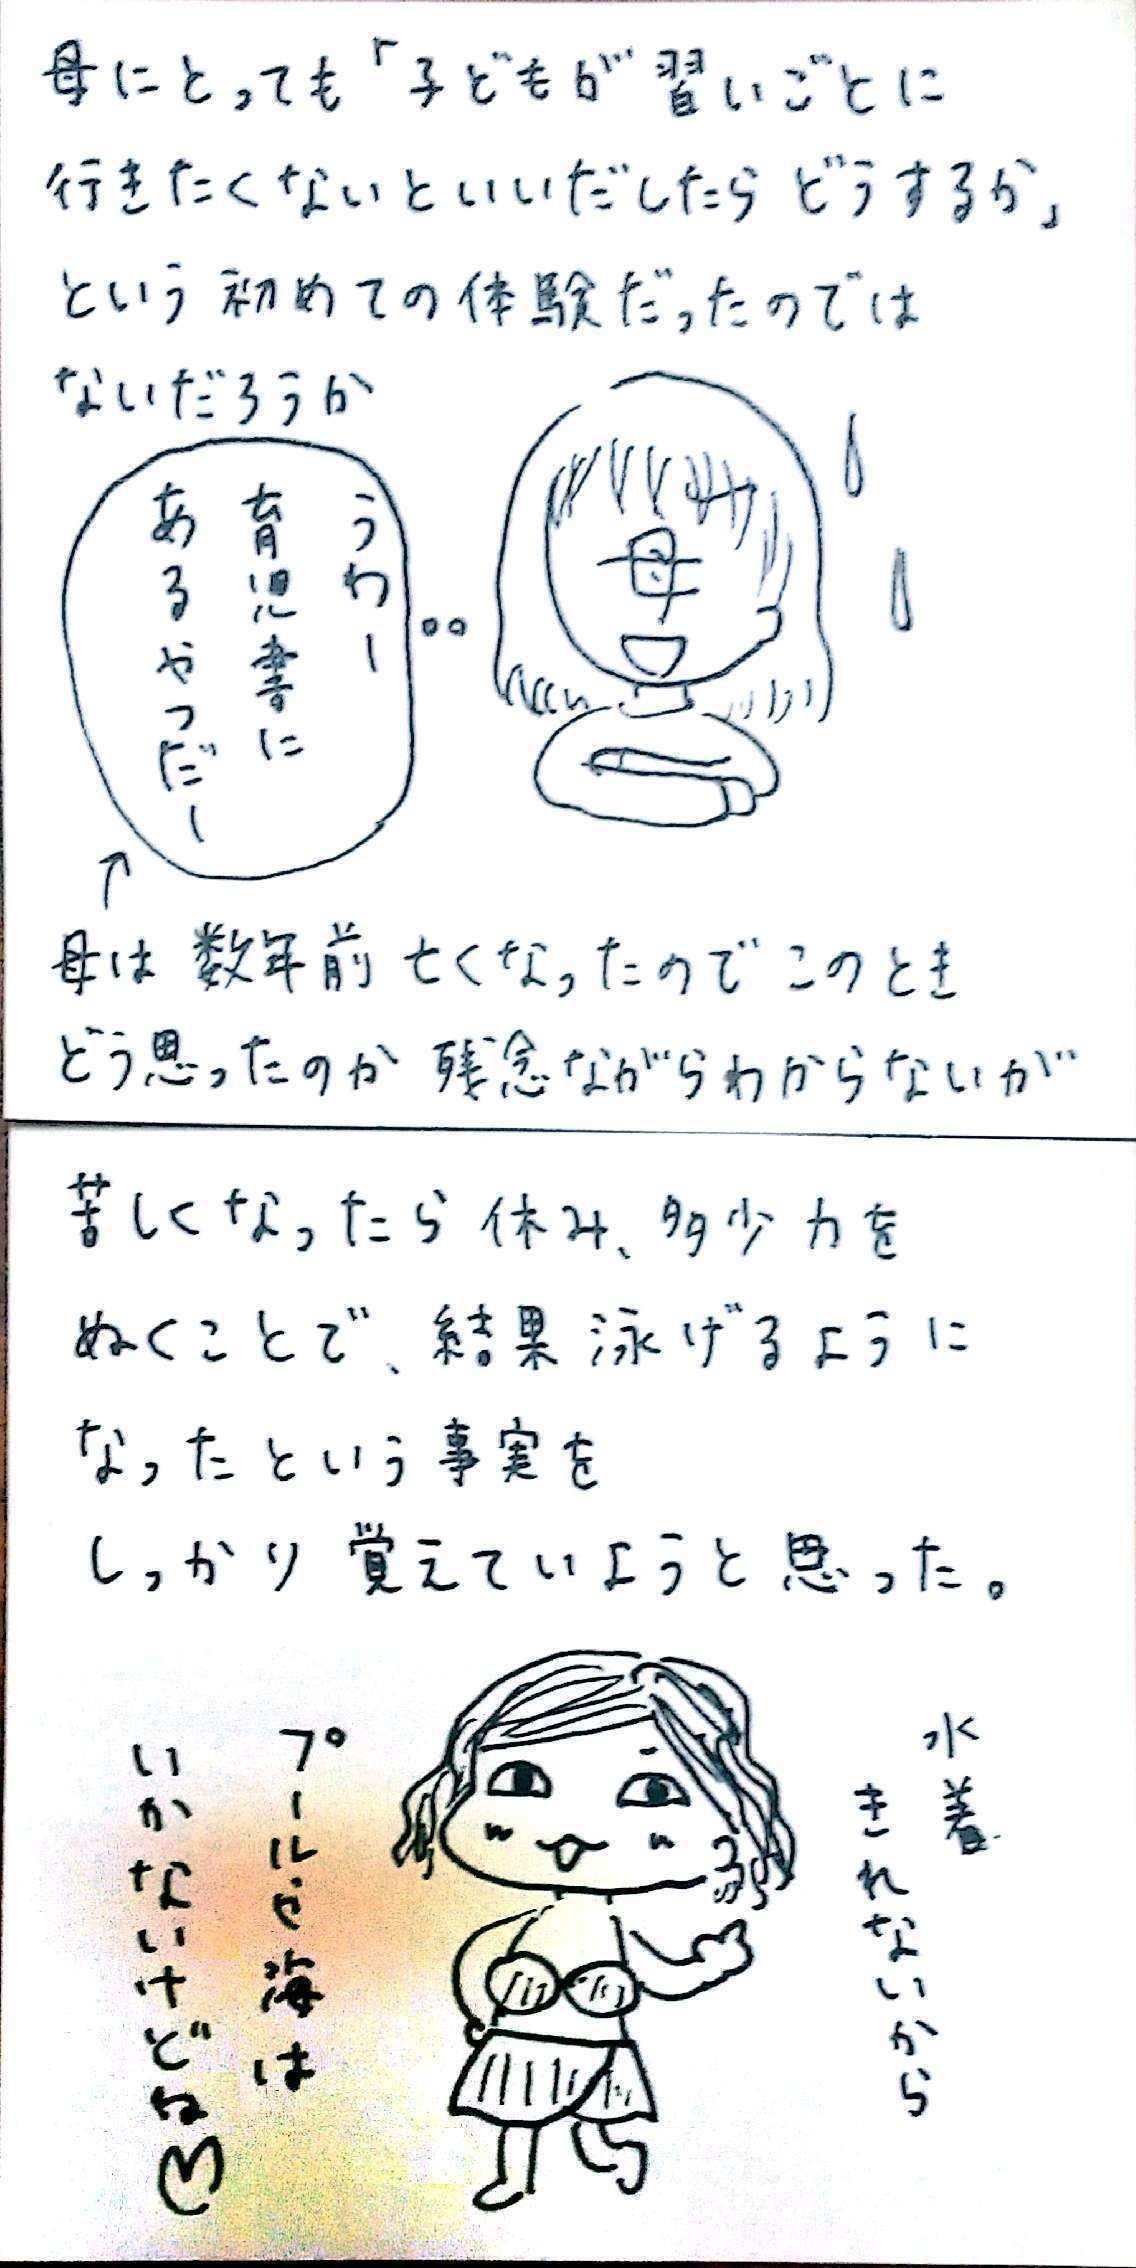 母にとっても「子どもが習いごとに
行きたくないといいだしたらどうするか」
という初めての体験だったのでは
ないだろうか
うわー
育児書に
あるやつだー
母
↑
母は数年前亡くなったのでこのとき
どう思ったのか残念ながらわからないが
苦しくなったら休み、多少力を
ぬくことで、結果泳げるように
なったという事実を
しっかり覚えていようと思った。
水着
きれないから
プールや海は
いかないけどね♡